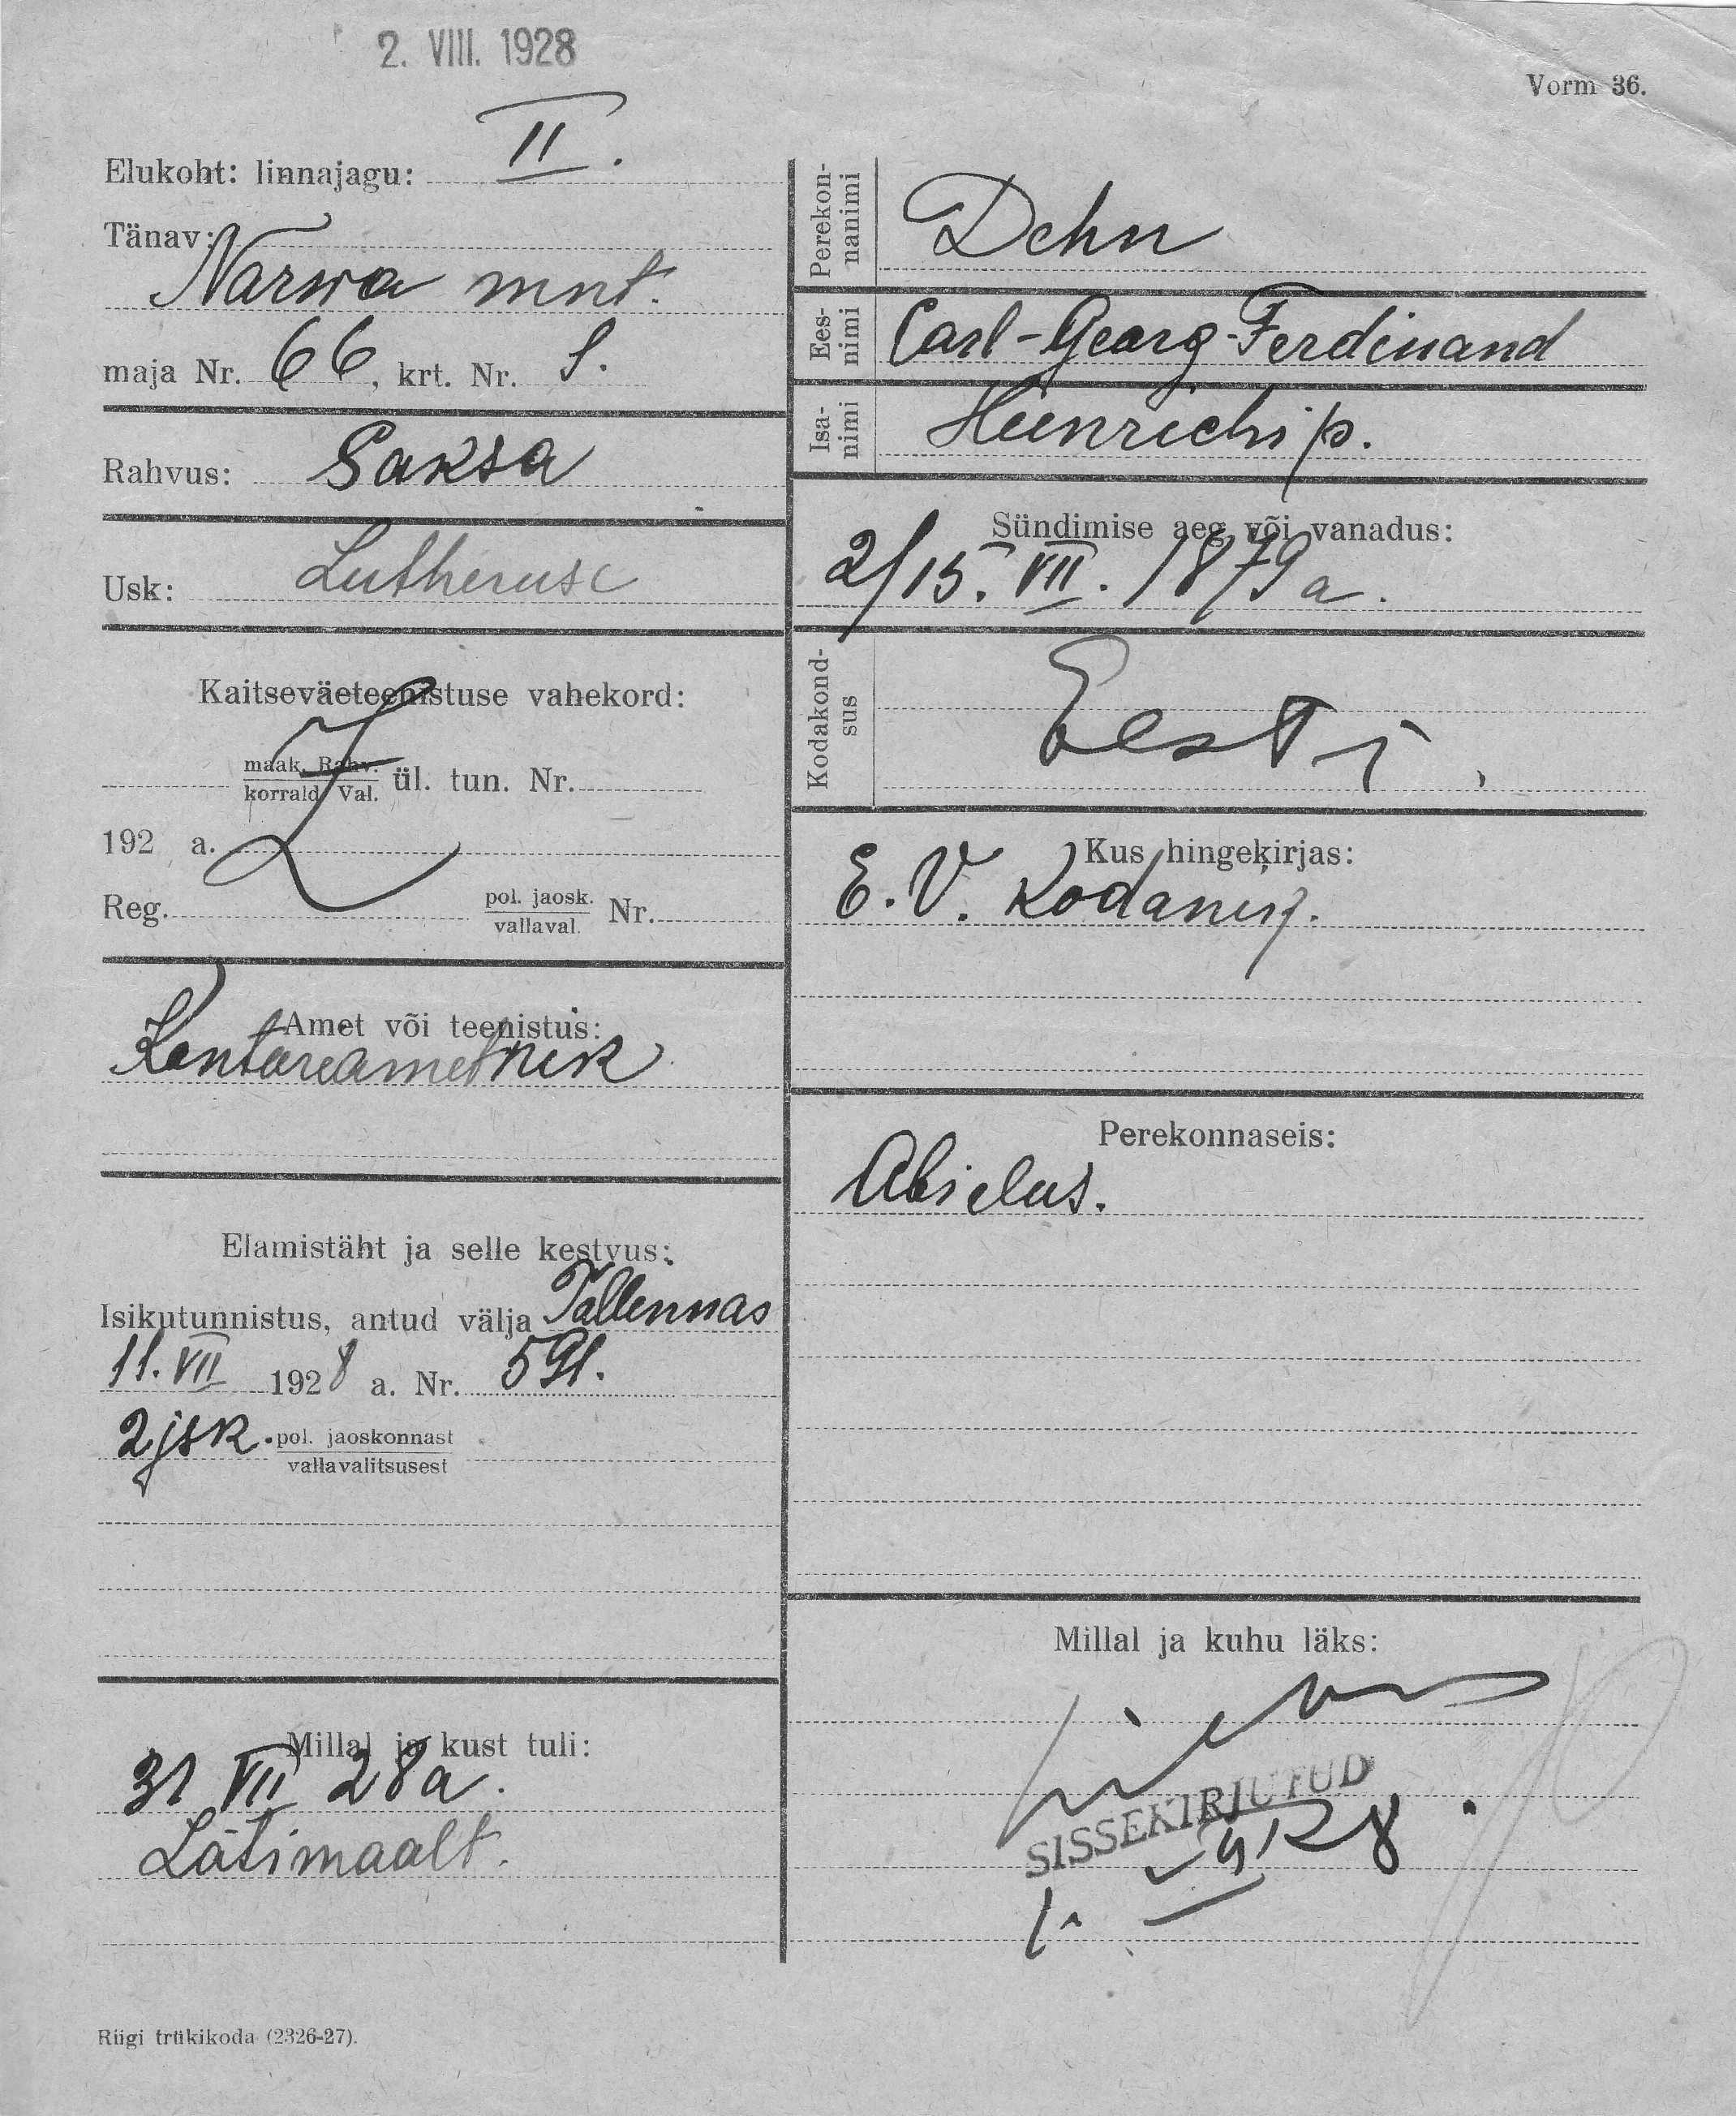 2. VIII. 1928
Vorm 36.
Elukoht: linnajagu: II.
Tänav:
Narwa mnt.
maja Nr. 66, krt. Nr. 1.
Rahvus: Saksa
Usk: Lutheruse
Kaitseväeteenistuse vahekord:
maak. Rahv.
korrald. Val. ül. tun. Nr.
192 a.
Reg. pol. jaosk. Nr.
vallaval.
Amet või teenistus:
Kontoriametnik
Elamistäht ja selle kestvus:
Isikutunnistus, antud välja Tallinnas
11. VII 1928 a. Nr. 591.
2 jsk. pol. jaoskonnast
vallavalitsusest
Millal ja kust tuli:
31 VII 28 a.
Lätimaalt.
Perekon-
nanimi
Dehn
Ees-
nimi
Carl-Georg-Ferdinand
Isa-
nimi
Heinrichi p.
Sündimise aeg või vanadus:
2/15. VII. 1879 a.
Kodakond-
sus
Eesti
Kus hingekirjas:
E. V. Kodanik.
Perekonnaseis:
Abielus.
Millal ja kuhu läks:
SISSEKIRJUTUD
Riigi trükikoda (2326-27).